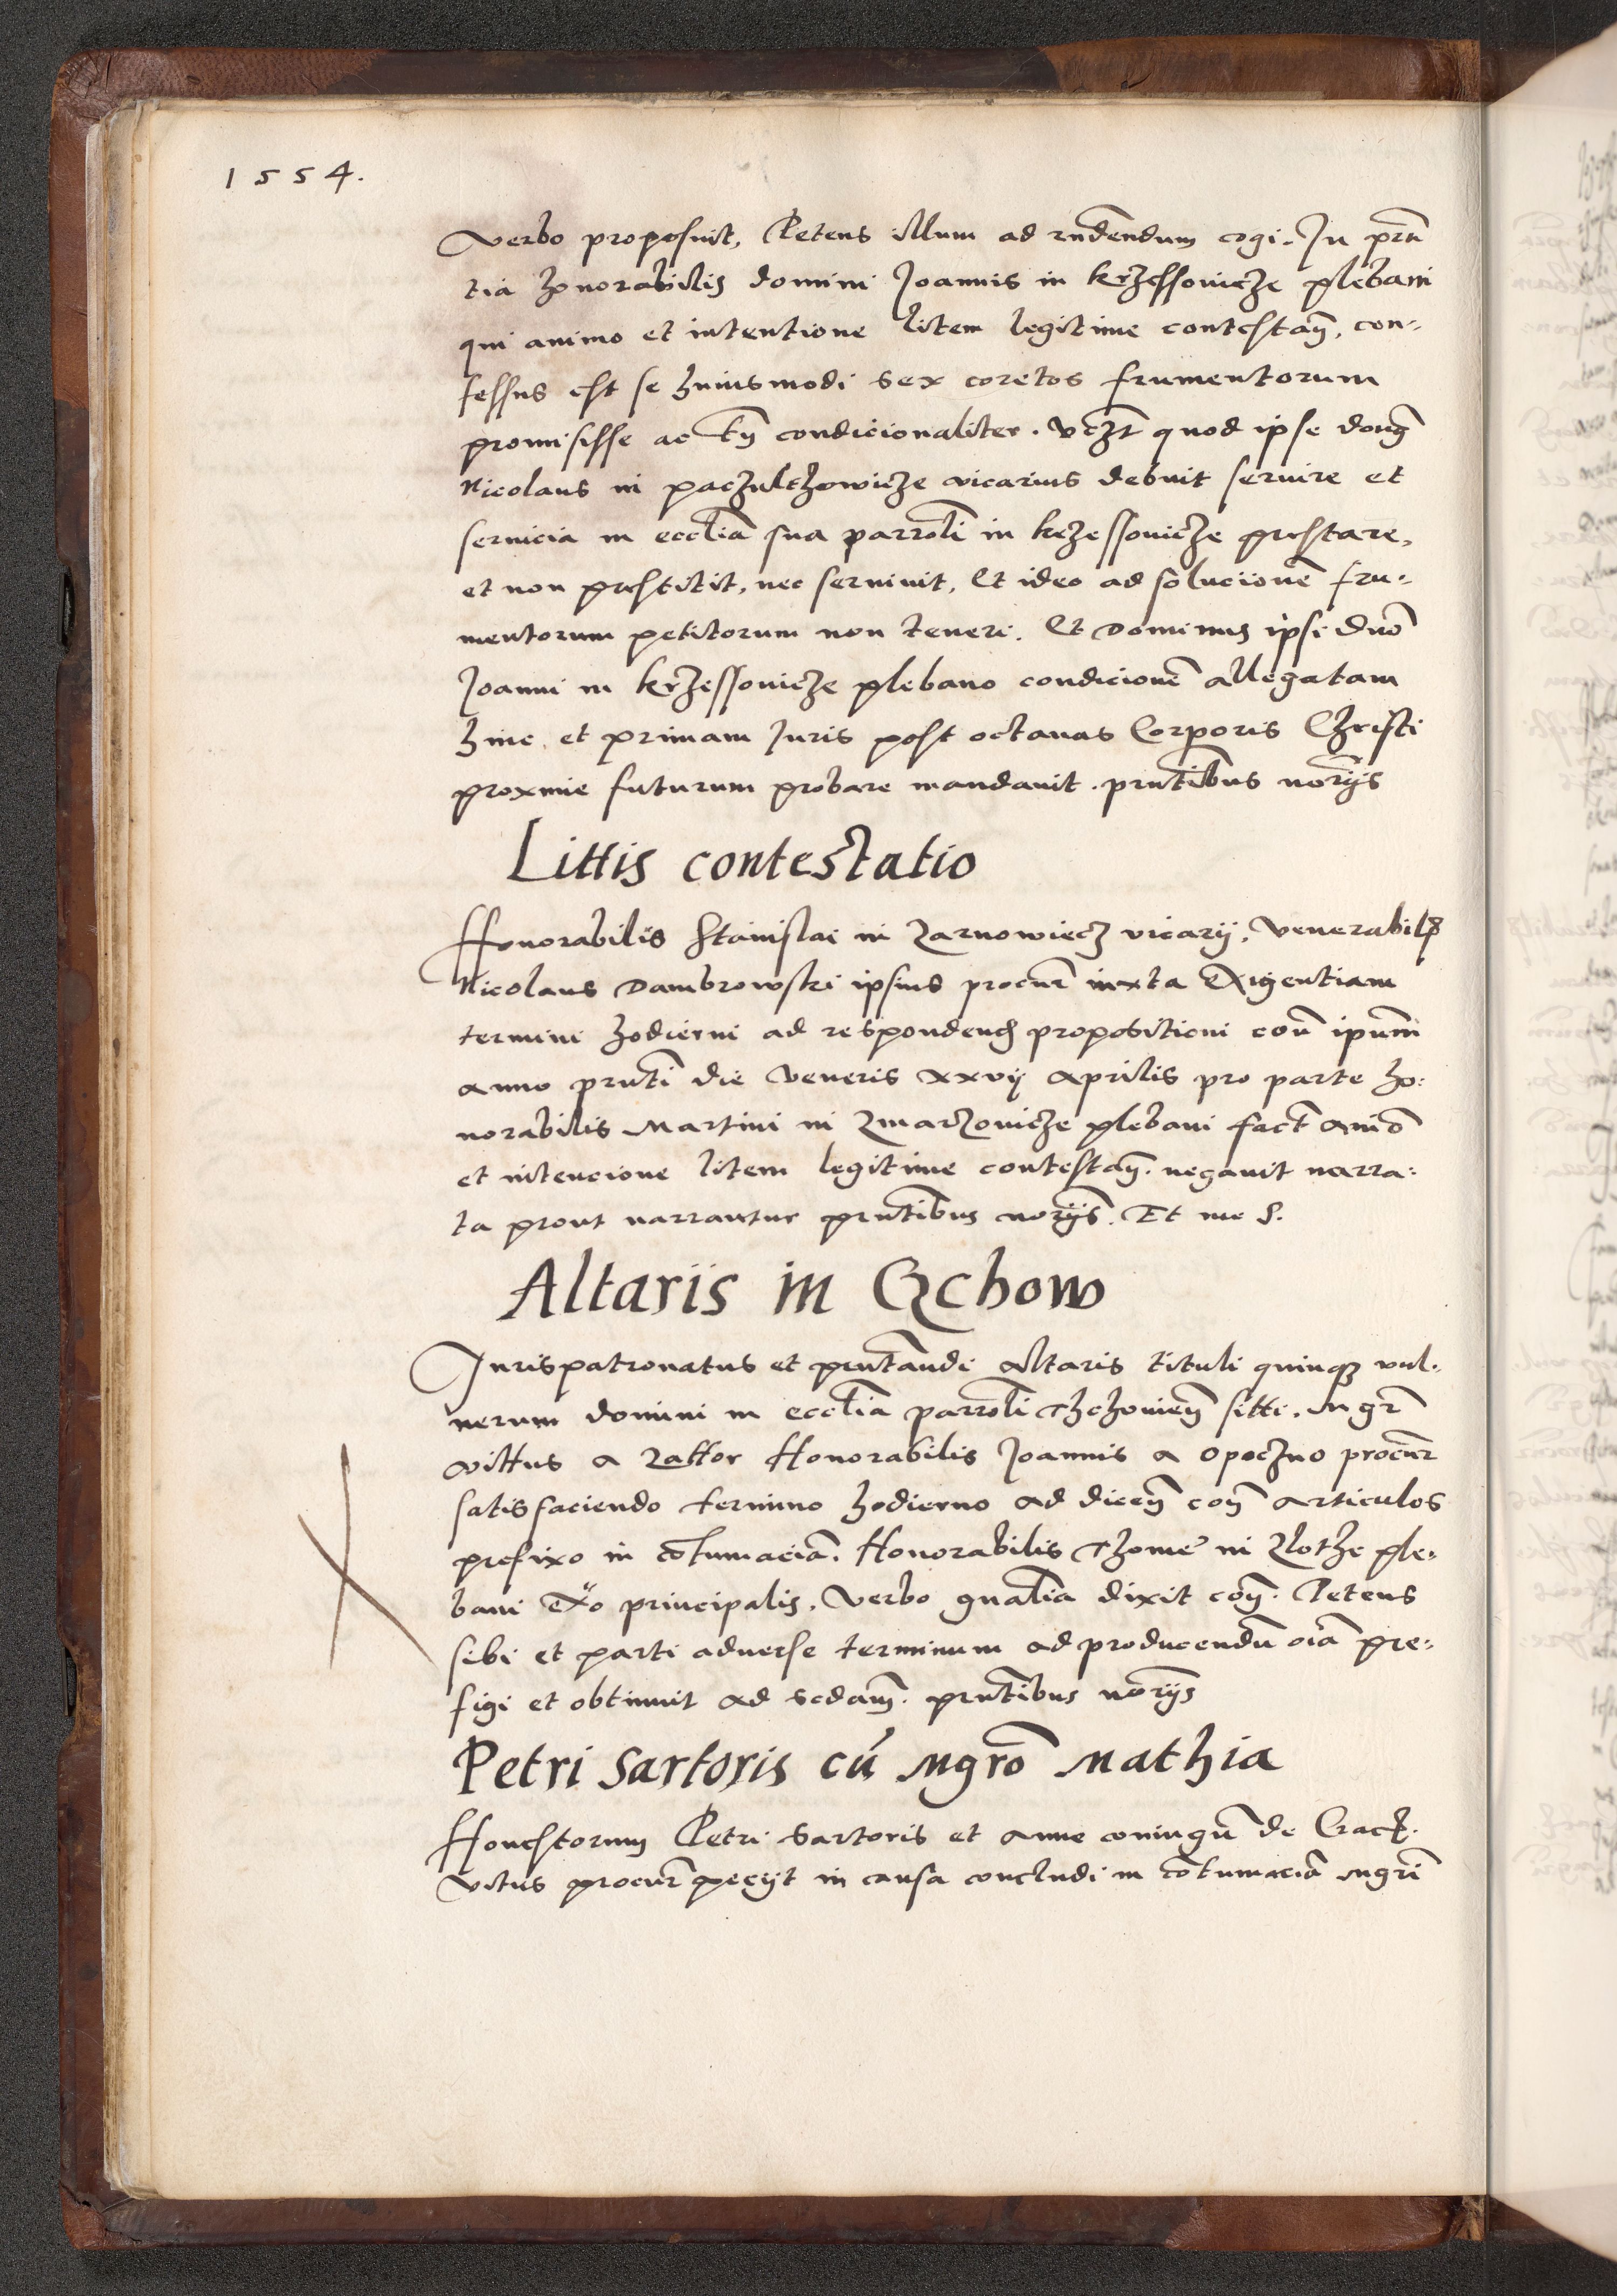 1554.
verbo proposuit, Petens illum ad rñdendum cogi. In prñ
tia honorabilis domini Joannis in krzessouicze plebani
qui animo et intentione litem legitime contestañ, con-
fessus est se huiusmodi sex coretos frumentorum
promisisse ac tñ condicionaliter. vczt quod ipse
Nicolaus in paczultzowicze vicarius debuit seruire et
seruicia in ecclia sua parroli in krzessouicze prestare,
et non prestitit, nec seruiuit, Et ideo ad solucionẽ fru-
mentorum petitorum non teneri. Et Dominus ipsi dno
Joanni in krzessouicze plebano condicionẽ allegatam
hinc et primam Juris post octauas Corporis Christi
proxime futurum probare mandauit. prntibus norijs
Littis contestatio
Honorabilis Stanislai in Zarnowiecz vicarij, venerabilis
Nicolaus Dambrowski ipsius procur iuxta Exigentiam
termini hodierni ad respondend propositioni con ipsum
anno prnti die Veneris xxvij Aprilis pro parte ho-
norabilis Martini in Zmarzouicze plebani fact animo
et intencione litem legitime contestañ. negauit narra-
ta prout narrantur prntibus norijs. Et me S.
Altariis in Czchow
Jurispatronatus et prntandi Altaris tituli quinque vul-
nerum domini in ecclia parroli Thchouien sitti. Mgr
vittus a Zattor Honorabilis Joannis a Opoczno procur
satisfaciendo termino hodierno ad dicen con articulos
prefixo in cotumaciã. Honorabilis Thome in Zlothe ple-
bani Exo principalis, Verbo gnalia dixit con. Petens
sibi et parti aduerse terminum ad producendũ oia pre-
figi et obtinuit ad scdam. prntibus norijs
Petri Sartoris cũ Mgro Mathia
Honestorum Petri Sartoris et Anne coniugũ de Crac.
Vitus procur pecijt in causa concludi in cotumaciã Mgri